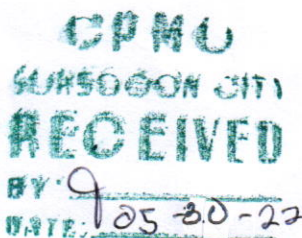 SORSOGON CITY
RECEIVED
BY:
DATE: 05-30-22